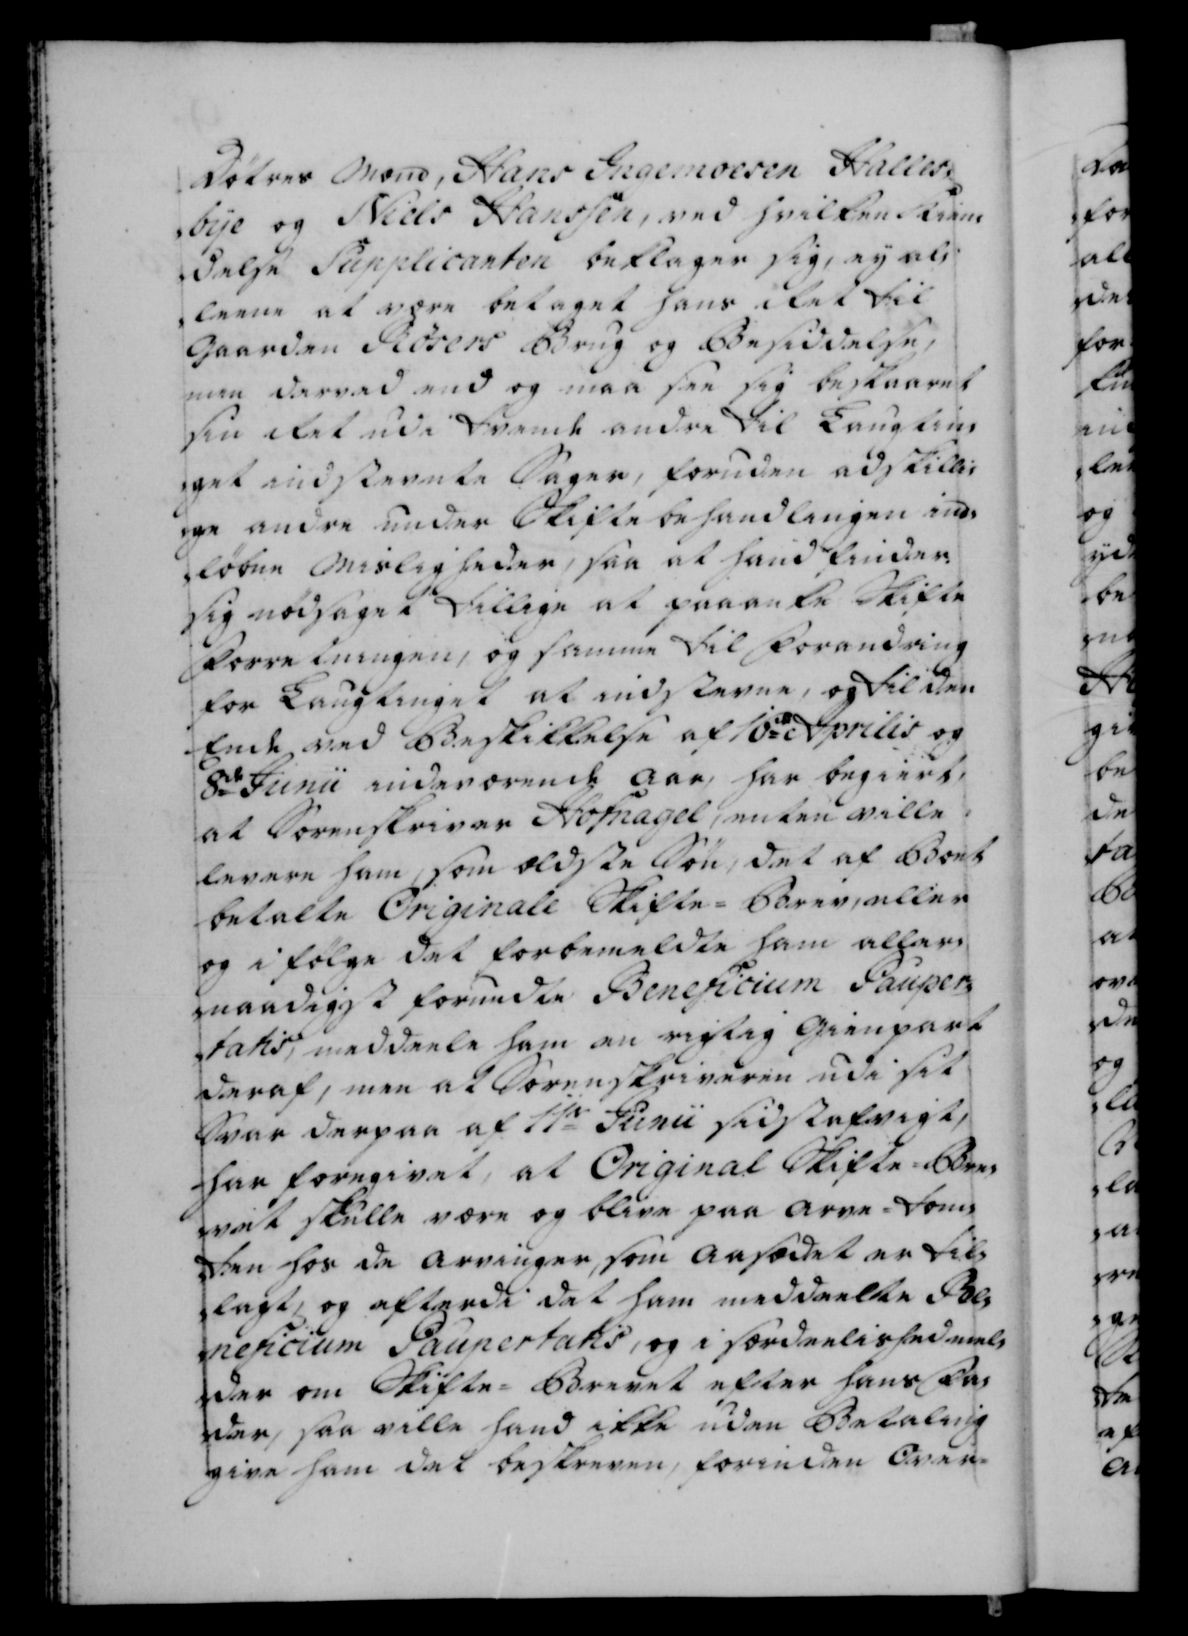 Døtres Mænd, Hans Ingemoesen Halles-
bÿe og Niels Hanssen, ved hvilken Kien-
delse Supplicanten beklager sig, ey al-
leene at være betaget hans Ret til
Gaarden Røsers Brug og Besiddelse,
men derved end og maa see sig beskaaret
sin Ret udi tvende andre til Laugtin-
get indstevnte Sager, foruden adskilli-
ge andre under Skiftebehandlingen ind-
løbne Misligheder, saa at hand finder
sig nødsaget tillige at paaanke Skifte
Forretningen, og samme til Forandring
for Laugtinget at indstevne, og til den
Ende ved Beskikkelse af 16de Aprilis og
8de Junii indeværende Aar, har begiert,
at Sorenskriver Hofnagel, enten ville
levere ham, som ældste Søn, det af Boet
betalte Originale Skifte-Brev, eller
og i følge det forbemeldte ham aller-
naadigst forundte Beneficium Pauper-
tatis, meddeele ham en rigtig Gienpart
deraf, men at Sorenskriveren udi sit
Svar derpaa af 11te Junii sidstafvigt,
har foregivet, at Original Skifte-Bre-
vet skulle være og blive paa Arve-Tom-
ten hos de Arvinger, som Aasædet er til-
lagt, og efterdi det ham meddeelte Be-
neficium Paupertatis, og i særdeelished mel-
der om Skifte-Brevet efter hans Fa-
der, saa ville hand ikke uden Betaling
give ham det beskreven, forinden Over-